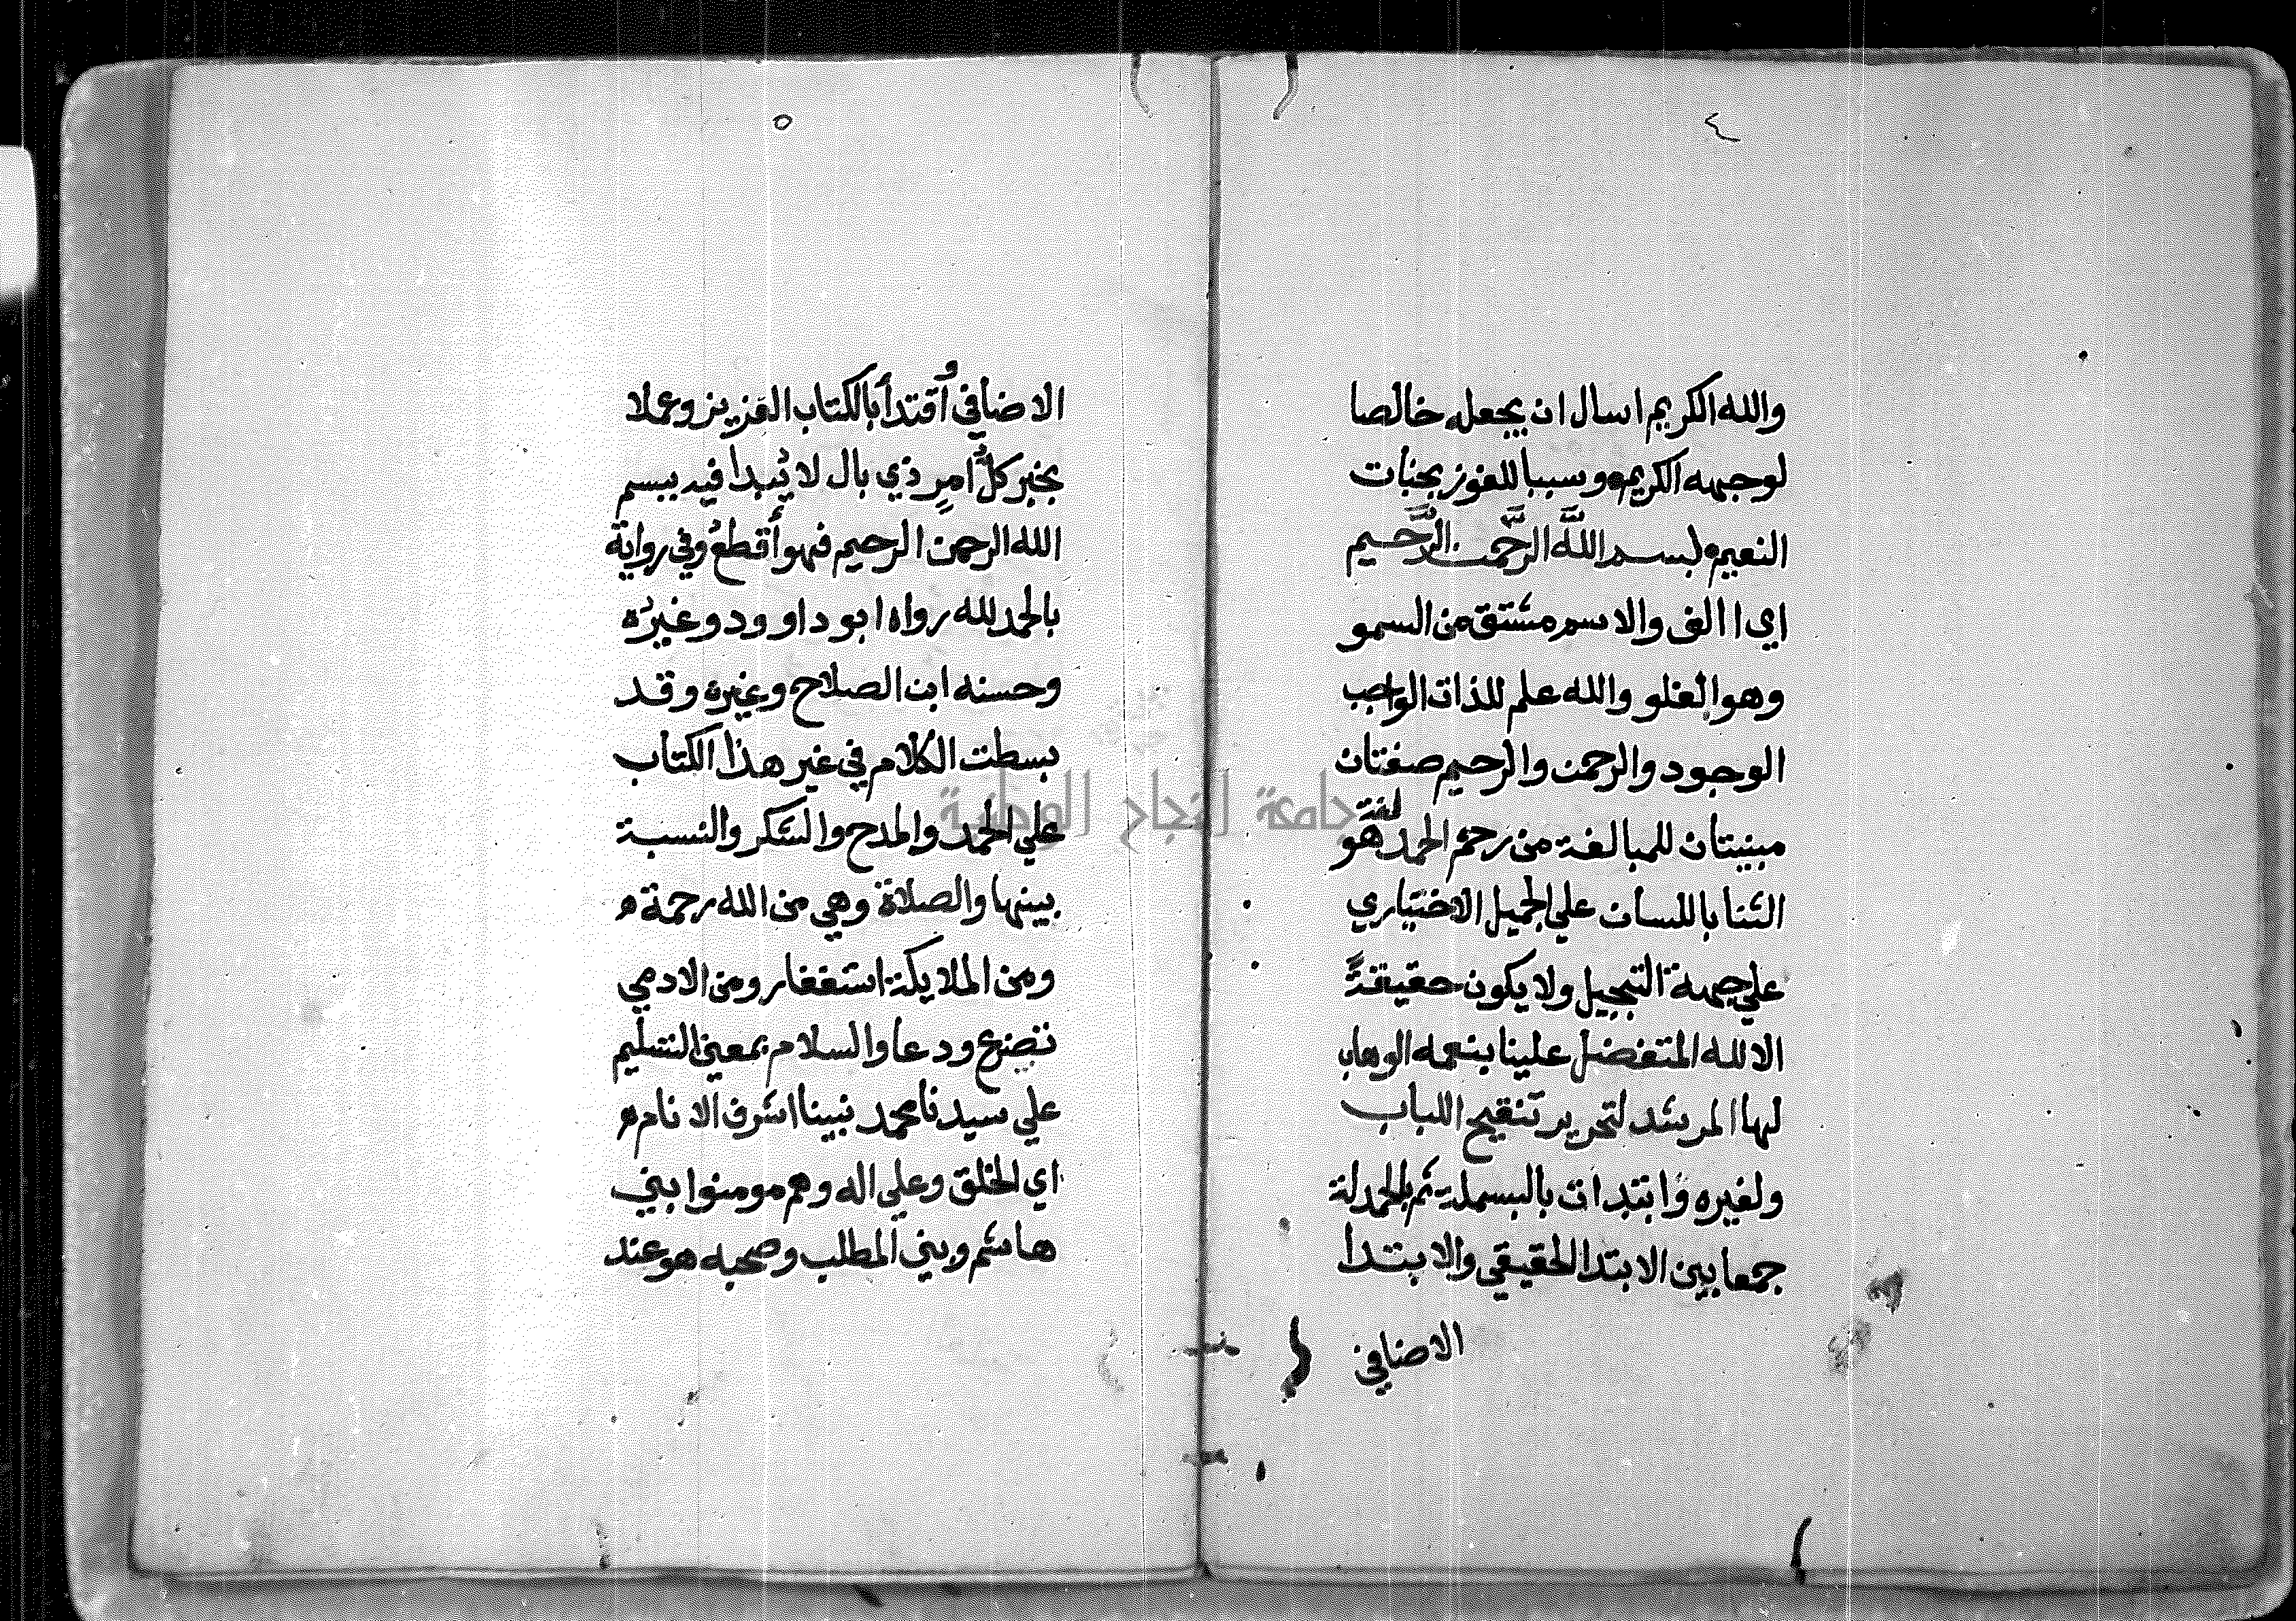 ٤
والله الكريم اسال ان يجعله خالصا
لوجهه الكريم وسببا للفوز بجنات
النعيم بسم اللَّه الرَّحمن الرَّحيم
اي االف والاسم مشتق من السمو
وهو العلو والله علم للذات الواجب
الوجود والرحمن والرحيم صفتان
مبنيتان للمبالغة من رحم الحمد لله هو
لغة
الثنا باللسان علي الجميل الاختياري
علي جهة التبجيل ولا يكون حقيقةً
الا لله المتفضل علينا بنعمه الوهاب
لها المرشد لتحرير تنقيح اللباب
ولغيره وابتدات بالبسملة ثم بالحمدلة
جمعا بين الابتدا الحقيقي والابتدا
الاضافي
٥
الاضافي أُقتدأ بالكتاب العزيز وعملا
بخبر كلُّ امرٍ ذي بال لا يُبدا فيه ببسم
الله الرحمن الرحيم فهو أقطعُ وفي رواية
بالحمد لله رواه ابو داوود وغيرُه
وحسنه ابن الصلاح وغيره وقد
بسطت الكلام في غير هذا الكتاب
علي الحمد والمدح والشكر والنسبة
بينها والصلاة وهي من الله رحمة
ومن الملايكة استغفار ومن الادمي
تضرع ودعا والسلام بمعني التسليم
علي سيدنا محمد نبينا اشرف الانام
اي الخلق وعلي اله وهم مومنوا بني
هاشم وبني المطلب وصحبه هو عند
جامعة النجاح الوطنية